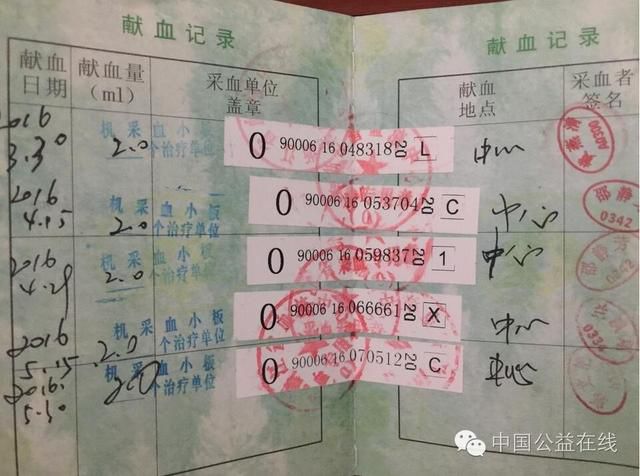 献血记录
献血记录
献血日期
献血量（ml）
采血单位盖章
献血地点
采血者签名
2016
3.30
机采血小板
2.0 个治疗单位
0 90006 16 048318 20 L
中心
A0300
2016
4.15
机采血小板
2.0 个治疗单位
0 90006 16 053704 20 C
中心
0342
2016
4.29
机采血小板
2.0 个治疗单位
0 90006 16 059837 20 1
中心
2016
5.15
机采血小板
2.0 个治疗单位
0 90006 16 066661 20 X
中心
2016.
5.30
机采血小板
2.0 个治疗单位
0 90006 16 070512 20 C
中心
中国公益在线